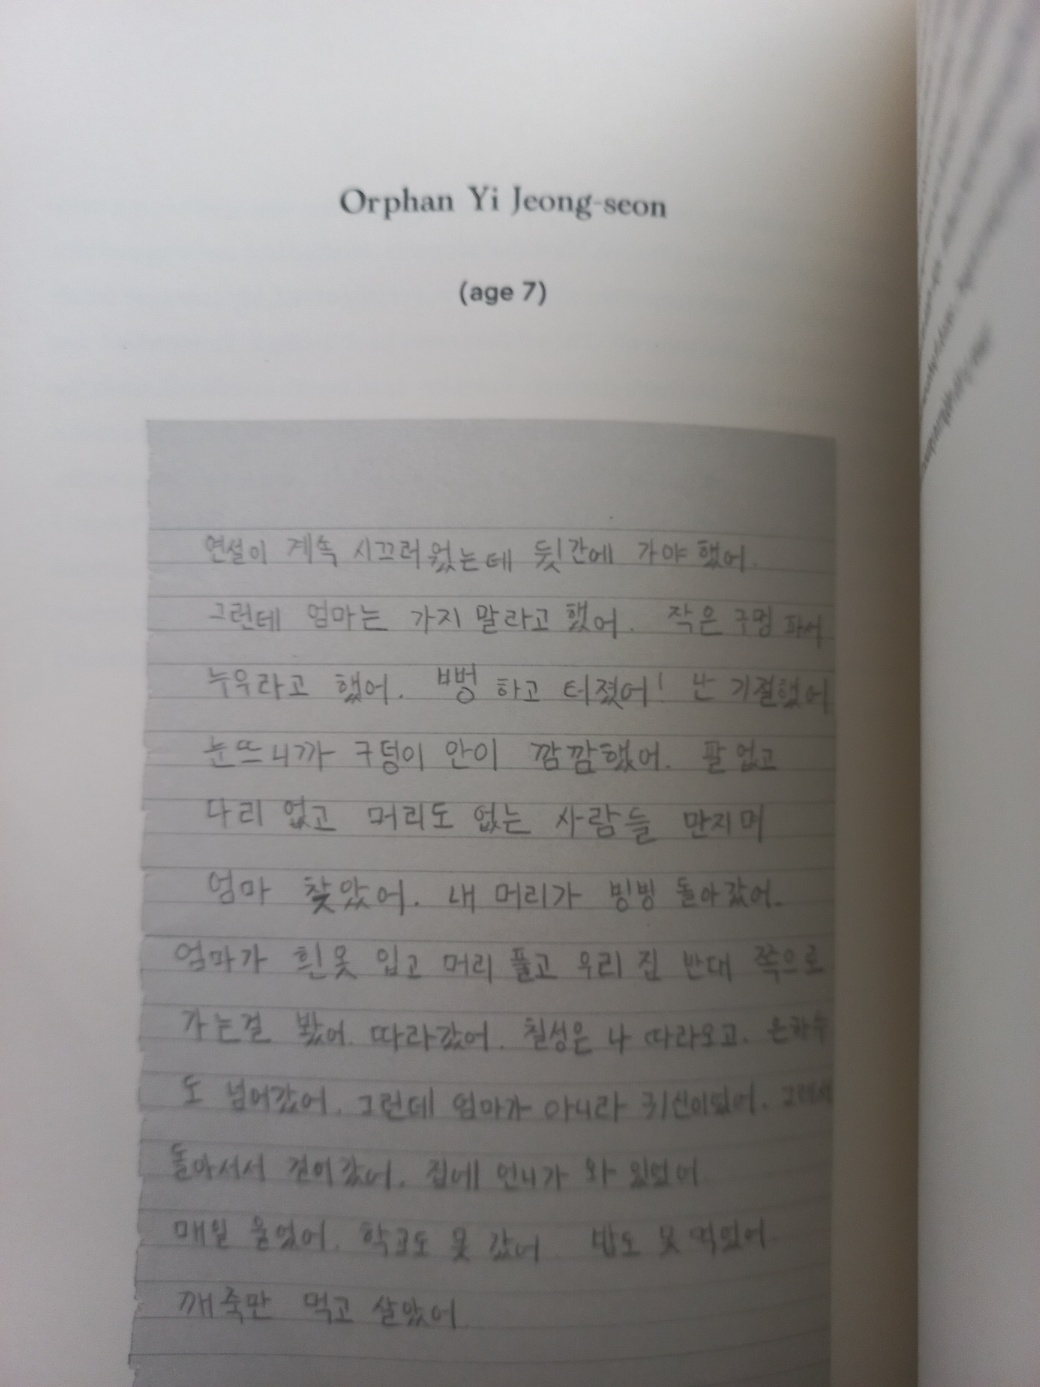 Orphan Yi Jeong-seon
(age 7)
연설이 계속 시끄러웠는데 뒷간에 가야 했어.
그런데 엄마는 가지 말라고 했어. 작은 구멍 파서
누우라고 했어. 뻥 하고 터졌어! 난 기절했어
눈뜨니까 구덩이 안이 깜깜했어. 팔 없고
다리 없고 머리도 없는 사람들 만지며
엄마 찾았어. 내 머리가 빙빙 돌아갔어.
엄마가 흰옷 입고 머리 풀고 우리 집 반대 쪽으로
가는걸 봤어. 따라갔어. 칠성은 나 따라오고. 은하수
도 넘어갔어. 그런데 엄마가 아니라 귀신이었어. 그래서
돌아서서 걸어갔어. 집에 언니가 와 있었어
매일 울었어. 학교도 못 갔어 밥도 못 먹었어
깨죽만 먹고 살았어